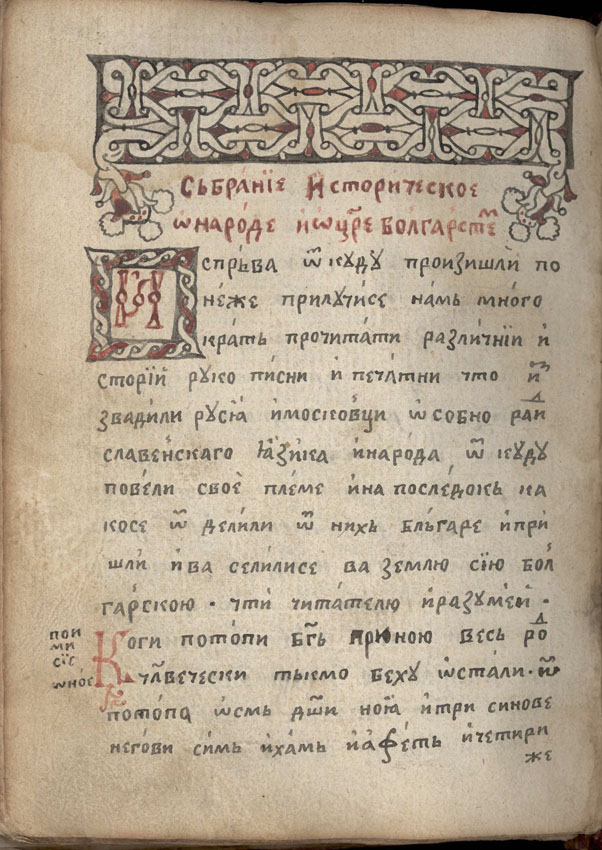 Събранїе Їсторическое
ѡнаро́де и҆ѡцр҃е болгарстѣ
И҆спръва ѿ кꙋдꙋ произишли по
не́же прилꙋ́чисе на́мь много
кра́ть прочита́ти разли́чнїи и҆
сторїй рꙋко пи́сни и҆ печа́тни что изд
звадили рꙋсїѧ и҆москѡвци ѡсобно ради
славе́нскаго ꙗзи́ка и҆наро́да ѿ кꙋдꙋ
пове́ли своѐ пле́ме и҆на последокь ка
косе ѿ дели́ли ѿ нихь бльгаре и҆при
шли и҆ва сели́лисе ва землю сїю бол
га́рскою · чти̑ чита́телю и҆разꙋме́й ·
Коги пото́пи бг҃ь при́ною весь род
чл҃вечески тькмо бехꙋ ѡста́ли · ѿ
пото́па ѡсмь дш҃и ноїа и҆три синове
негови симь и҆хамь и҆а҆фе́ть и҆четири
же
пои
ми
сїе
ѡно́е